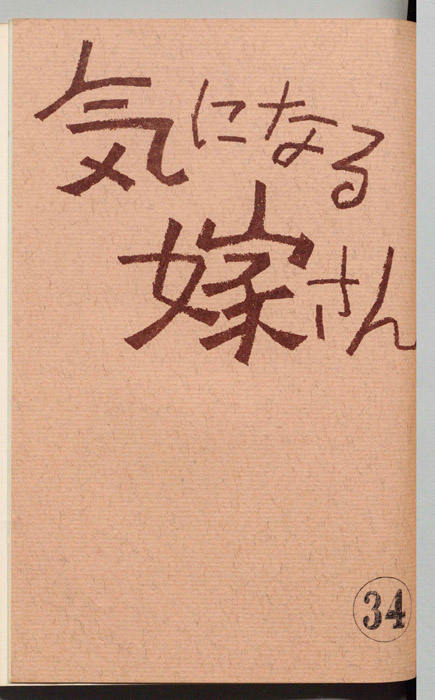 気になる
嫁さん
34